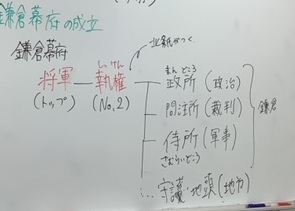 鎌倉幕府の成立
鎌倉幕府
北条がつく
将軍 — 執権
しっけん
(トップ) (No,2)
まんどころ
政所 (政治)
問注所 (裁判)
侍所 (軍事)
さむらいどころ
鎌倉
守護・地頭 (地方)